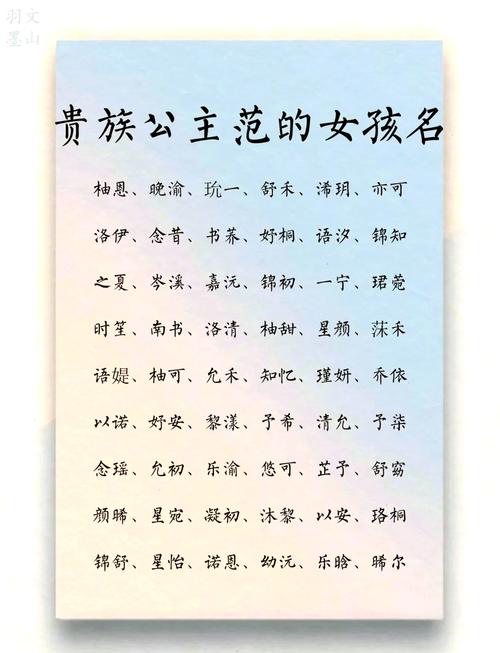 羽文
墨山
贵族公主范的女孩名
柚恩、晚渝、玧一、舒禾、浠玥、亦可
洛伊、念昔、书荞、妤桐、语汐、锦知
之夏、岑溪、嘉沅、锦初、一宁、珺菀
时笙、南书、洛清、柚甜、星颜、莯禾
语媞、柚可、允禾、知忆、瑾妍、乔依
以诺、妤安、黎漾、予希、清允、予柒
念瑶、允初、乐渝、悠可、芷予、舒窈
颜晞、星宛、凝初、沐黎、以安、珞桐
锦舒、星怡、诺恩、幼沅、乐晗、晞尔